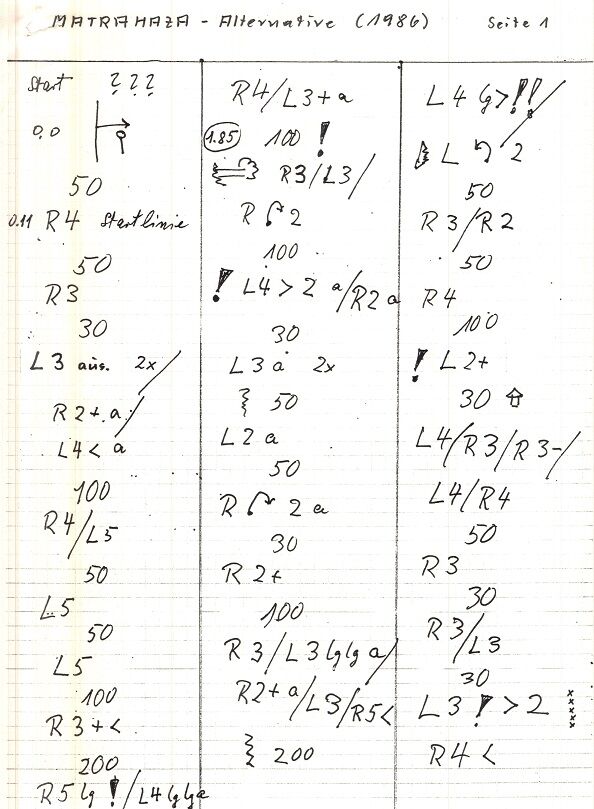 MATRAHAZA - Alternative (1986) Seite 1
Start ???
0,0
50
0.11 R4 Startlinie
50
R3
30
L3 aus. 2x/
R2+a/
L4< a
100
R4/L5
50
L5
50
L5
100
R3+<
200
R5 lg !/L4 lg lg a
R4/L3+a
1.85 100 !
R3/L3/
R 2
100
! L4>2 a/R2 a
30
L3 a 2x
50
L2 a
50
R 2 a
30
R2+
100
R3/L3 lg lg a/
R2+a/L3/R5<
200
L4 lg>!!/
L 2
50
R3/R2
50
R4
100
! L2+
30
L4/R3/R3-/
L4/R4
50
R3
30
R3/L3
30
L3 ! >2 xxxxx
R4<